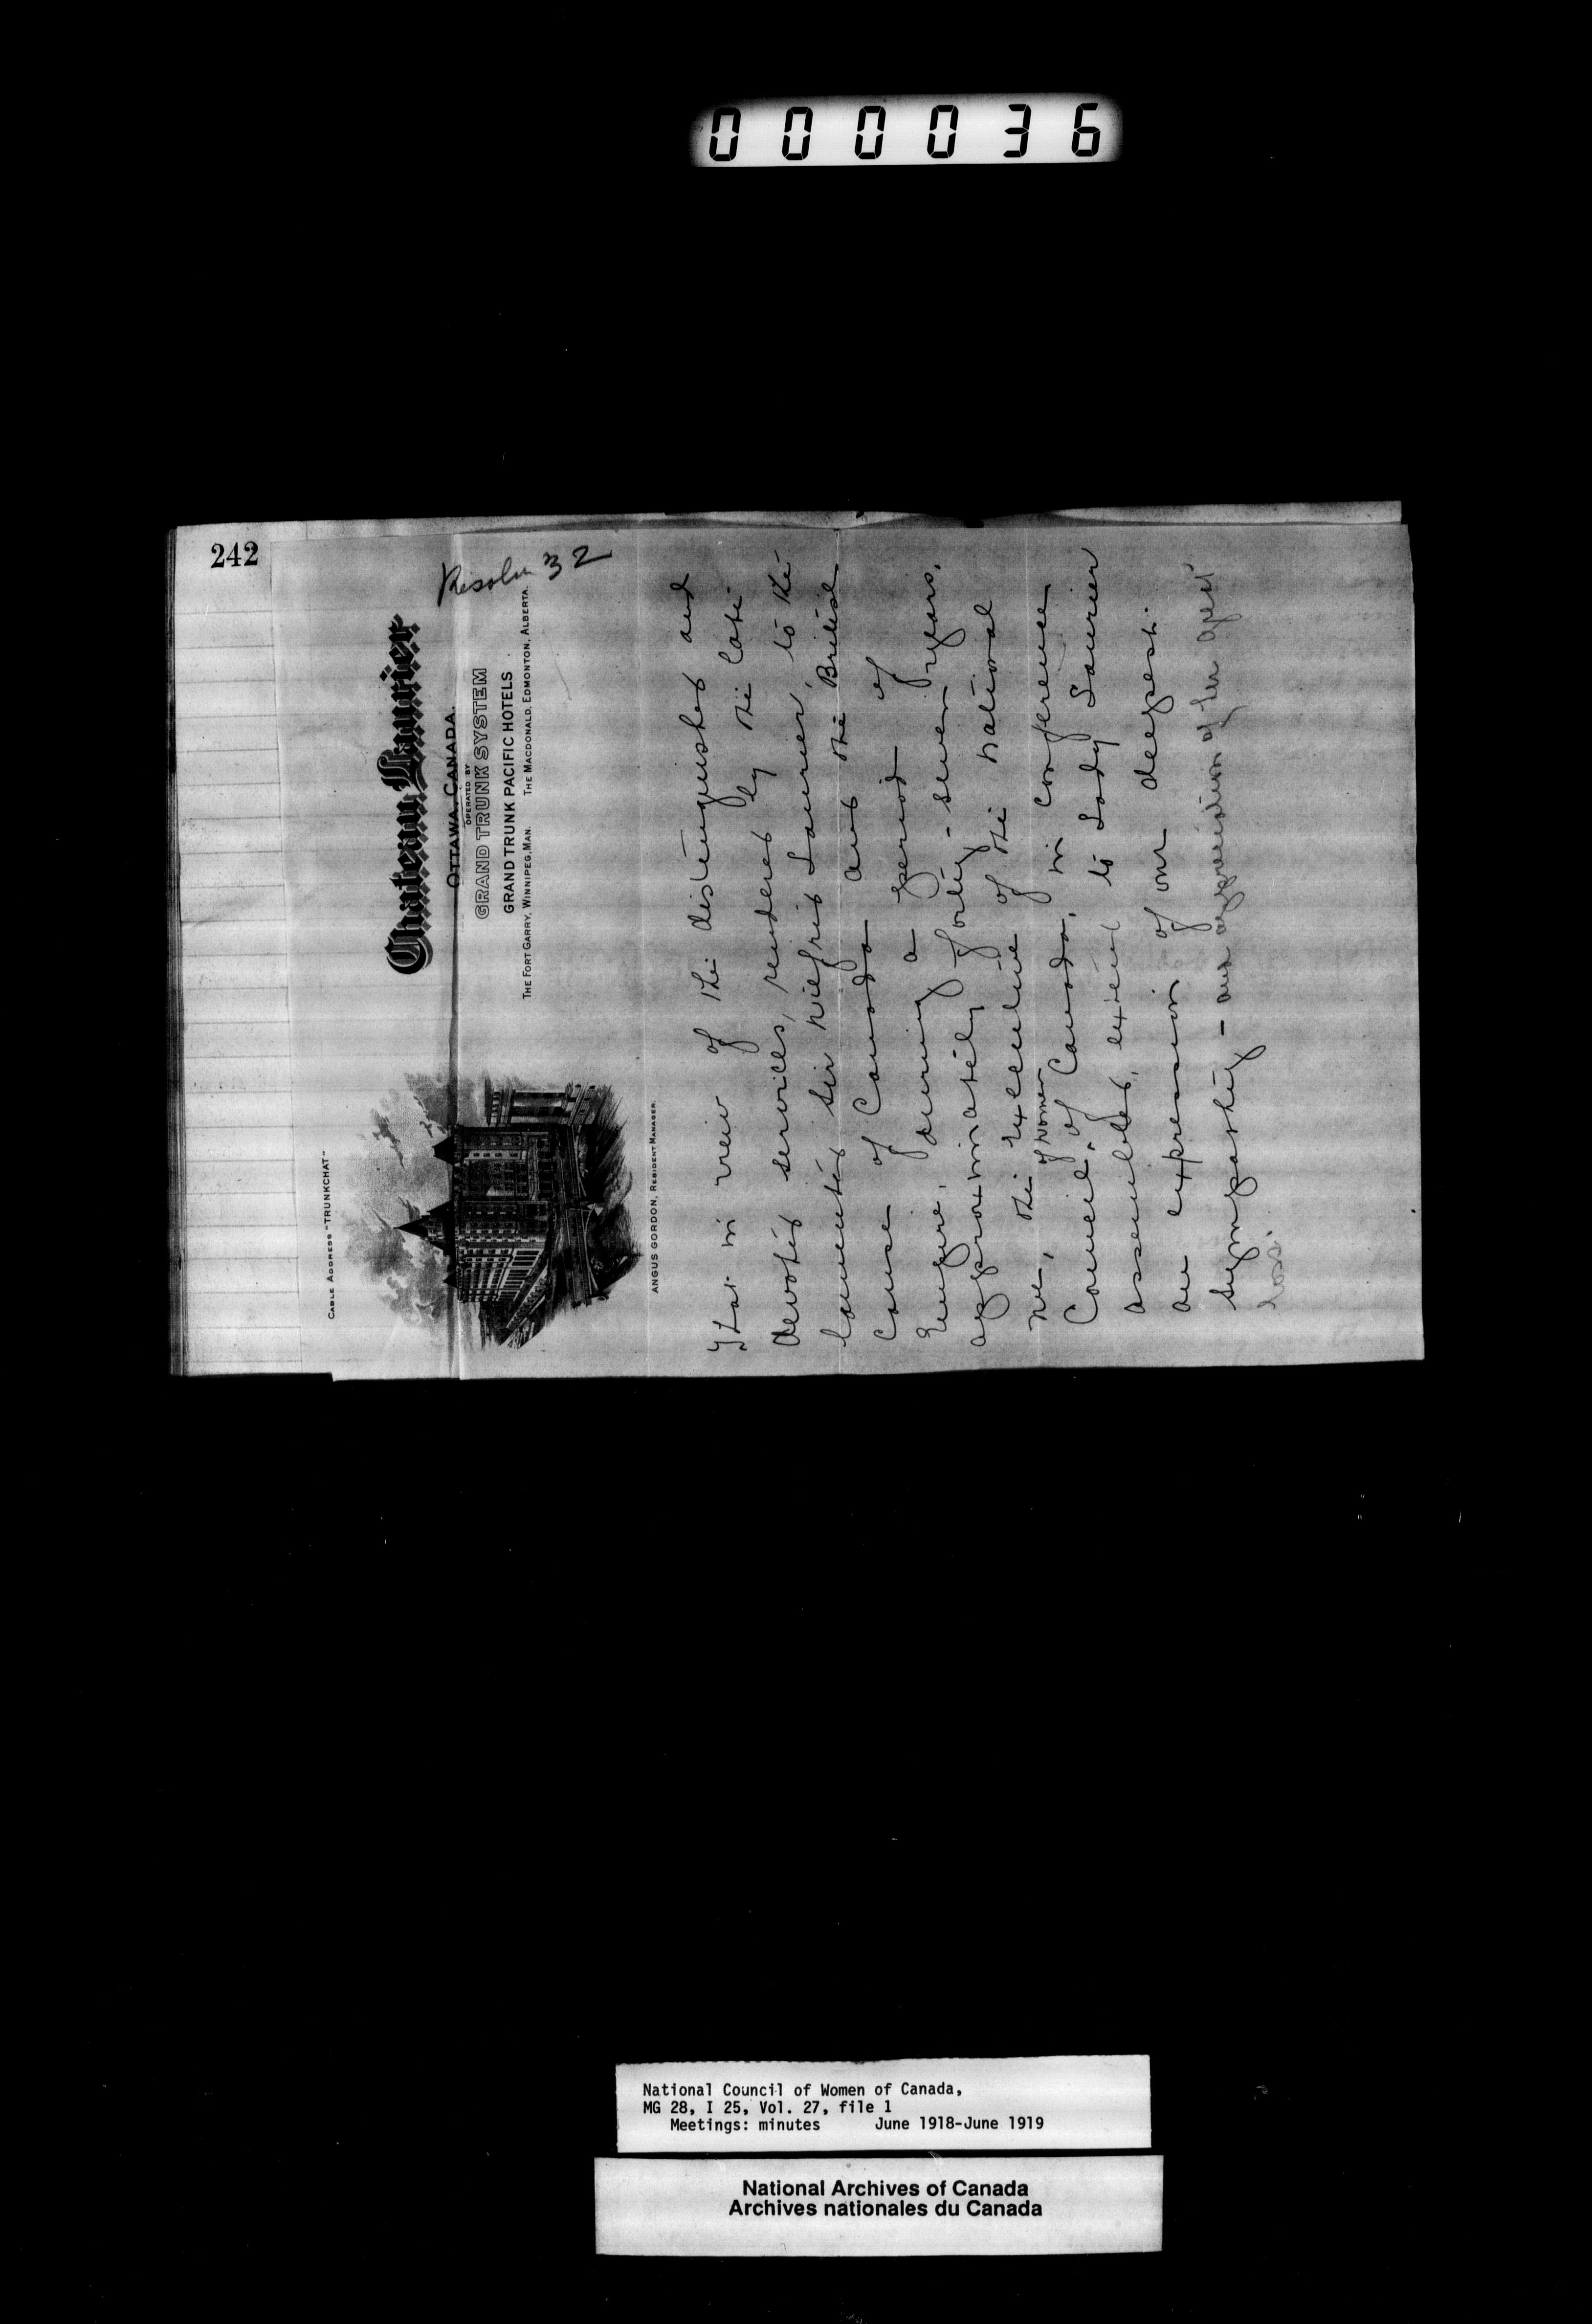 000036
242
Resolu 32
Cable Address "Trunkchat"
Chateau Laurier
Ottawa, Canada.
Operated by
Grand Trunk System
Grand Trunk Pacific Hotels
The Fort Garry, Winnipeg, Man. The Macdonald, Edmonton, Alberta.
Angus Gordon, Resident Manager.
That in view of the distinguished and
devoted services, rendered by the late
lamented Sir Wilfrid Laurier, to the
cause of Canada and the British
Empire, during a period of
approximately forty-seven years,
we, the Executive of the National
Council of Women of Canada, in conference
assembled, extend to Lady Laurier
an expression of our deepest
sympathy - and appreciation of her great
loss.
National Council of Women of Canada,
MG 28, I 25, Vol. 27, file 1
Meetings: minutes June 1918-June 1919
National Archives of Canada
Archives nationales du Canada